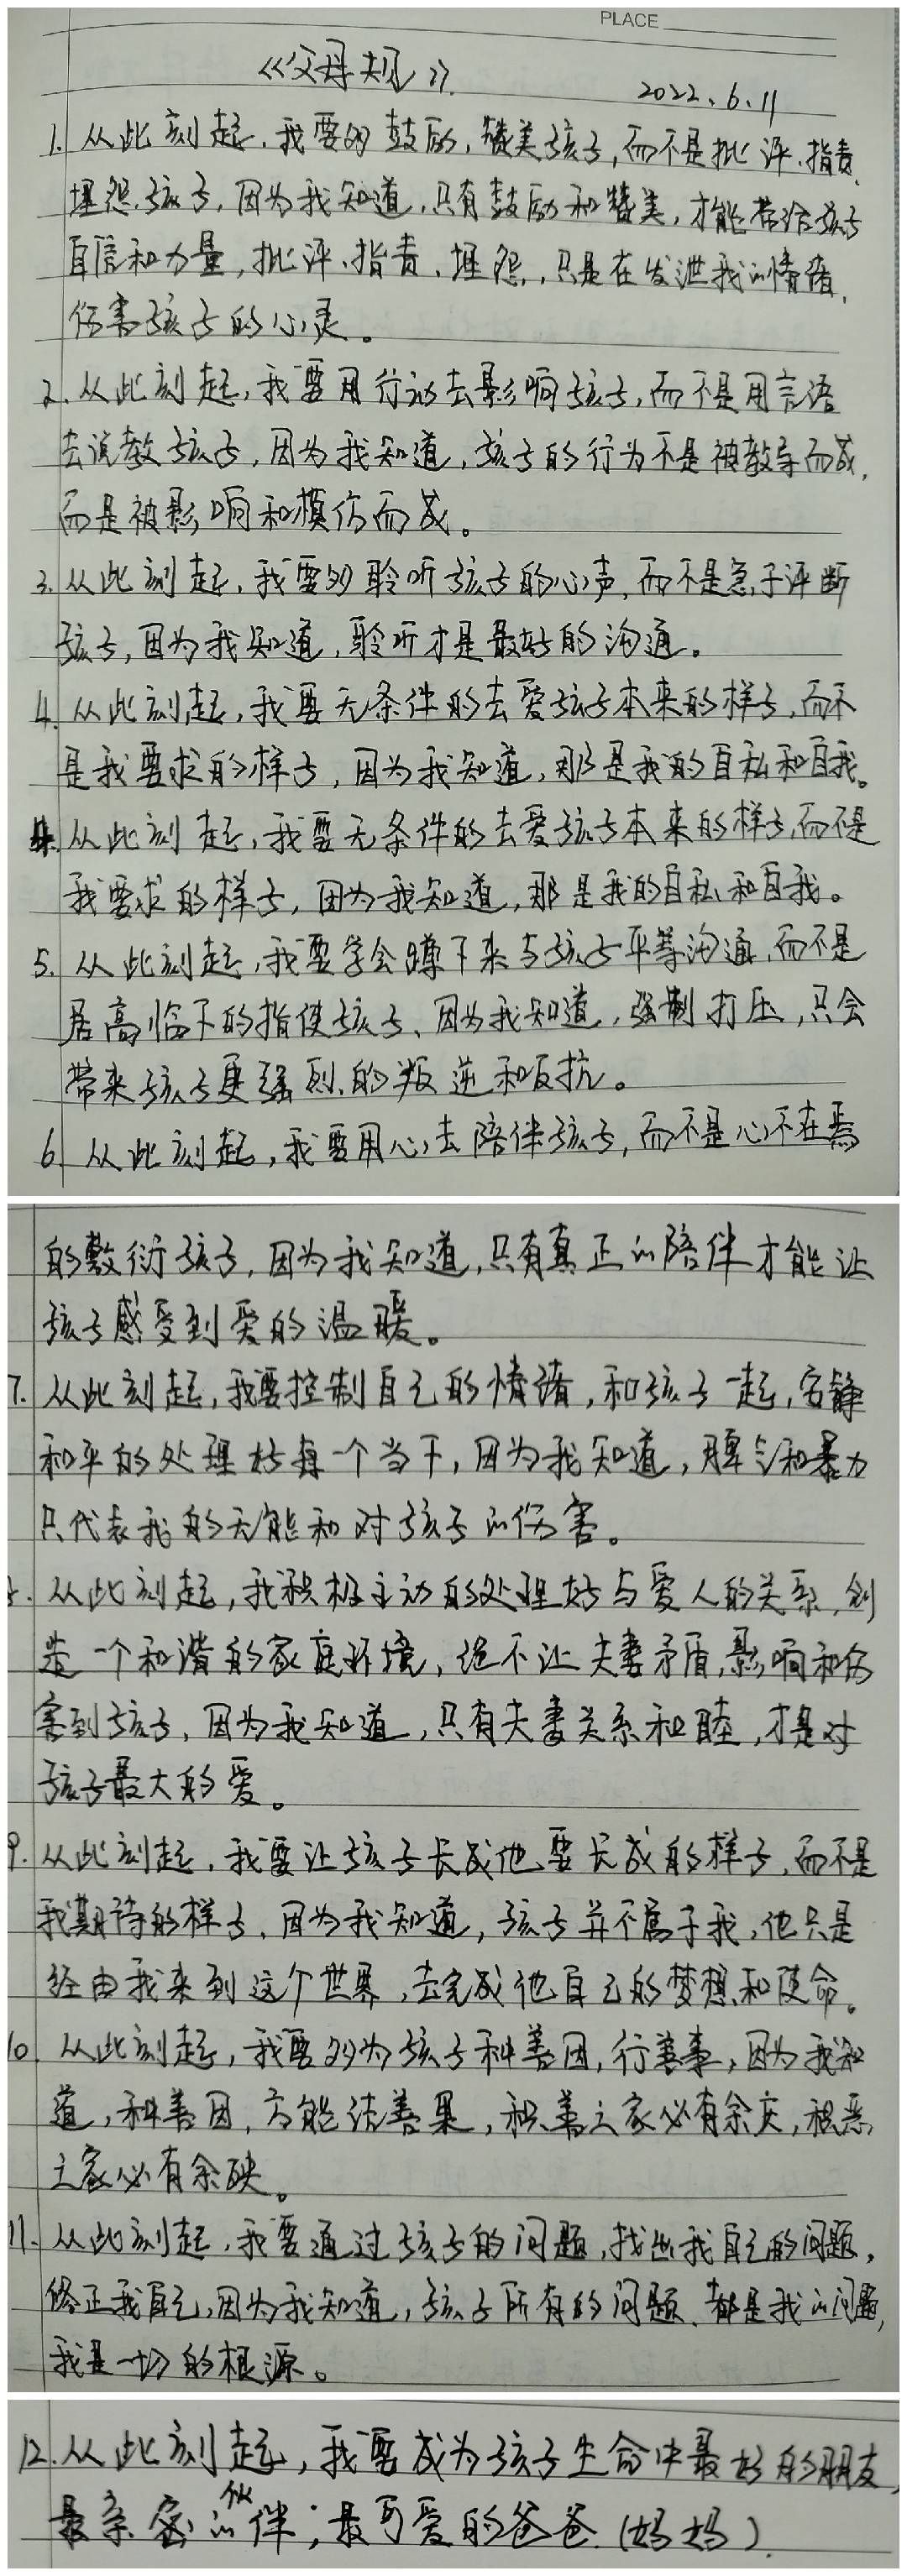 PLACE
《父母规》
2022.6.11
1. 从此刻起,我要多鼓励,赞美孩子,而不是批评.指责.
埋怨.孩子,因为我知道,只有鼓励和赞美,才能带给孩子
自信和力量,批评.指责.埋怨,只是在发泄我的情绪,
伤害孩子的心灵。
2. 从此刻起,我要用行动去影响孩子,而不是用言语
去说教孩子,因为我知道,孩子的行为不是被教导而成,
而是被影响和模仿而成。
3. 从此刻起,我要多聆听孩子的心声,而不是急于评断
孩子,因为我知道,聆听才是最好的沟通。
4. 从此刻起,我要无条件的去爱孩子本来的样子,而不
是我要求的样子,因为我知道,那是我的自私和自我。
4. 从此刻起,我要无条件的去爱孩子本来的样子,而不是
我要求的样子,因为我知道,那是我的自私和自我。
5. 从此刻起,我要学会蹲下来与孩子平等沟通,而不是
居高临下的指使孩子、因为我知道,强制打压,只会
带来孩子更强烈的叛逆和反抗。
6. 从此刻起,我要用心去陪伴孩子,而不是心不在焉
的敷衍孩子,因为我知道,只有真正的陪伴才能让
孩子感受到爱的温暖。
7. 从此刻起,我要控制自己的情绪,和孩子一起,安静
和平的处理好每一个当下,因为我知道,脾气和暴力
只代表我的无能和对孩子的伤害。
8. 从此刻起,我积极主动的处理好与爱人的关系,创
造一个和谐的家庭环境,绝不让夫妻矛盾,影响和伤
害到孩子,因为我知道,只有夫妻关系和睦,才是对
孩子最大的爱。
9. 从此刻起,我要让孩子长成他要长成的样子,而不是
我期待的样子,因为我知道,孩子并不属于我,他只是
经由我来到这个世界,去完成他自己的梦想和使命。
10. 从此刻起,我要多为孩子种善因,行善事,因为我知
道,种善因,方能结善果,积善之家必有余庆,积恶
之家必有余殃。
11. 从此刻起,我要通过孩子的问题,找出我自己的问题,
修正我自己,因为我知道,孩子所有的问题,都是我的问题,
我是一切的根源。
12. 从此刻起,我要成为孩子生命中最好的朋友,
最亲密的伙伴;最可爱的爸爸.(妈妈).